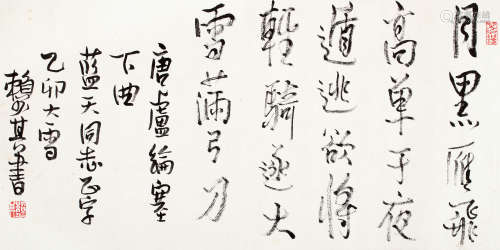 月黑雁飛
高單于夜
遁逃欲將
輕騎逐大
雪滿弓刀
唐盧綸塞
下曲
藍天同志正字
乙卯大雪
賴少其書